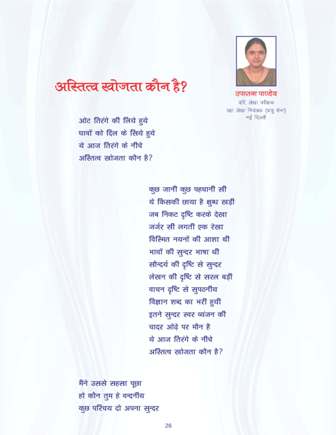 अस्तित्व खोजता कौन है?
उपासना पाण्डेय
वरि. लेखा परीक्षक
नई दिल्ली
ओट तिरंगे की लिये हुये
घावों को दिल के सिये हुये
ये आज तिरंगे के नीचे
अस्तित्व खोजता कौन है?
कुछ जानी कुछ पहचानी सी
ये किसकी छाया है क्षुब्ध खड़ी
जब निकट दृष्टि करके देखा
जर्जर सी लगती एक रेखा
विस्मित नयनों की आशा थी
भावों की सुन्दर भाषा थी
सौन्दर्य की दृष्टि से सुन्दर
लेखन की दृष्टि से सरल बड़ीं
वाचन दृष्टि से सुपठनीय
विज्ञान शब्द का भरी हुयी
इतने सुन्दर स्वर व्यंजन की
चादर ओढ़े पर मौन है
ये आज तिरंगे के नीचे
अस्तित्व खोजता कौन है?
मैंने उससे सहसा पूछा
हो कौन तुम हे वन्दनीय
कुछ परिचय दो अपना सुन्दर
26